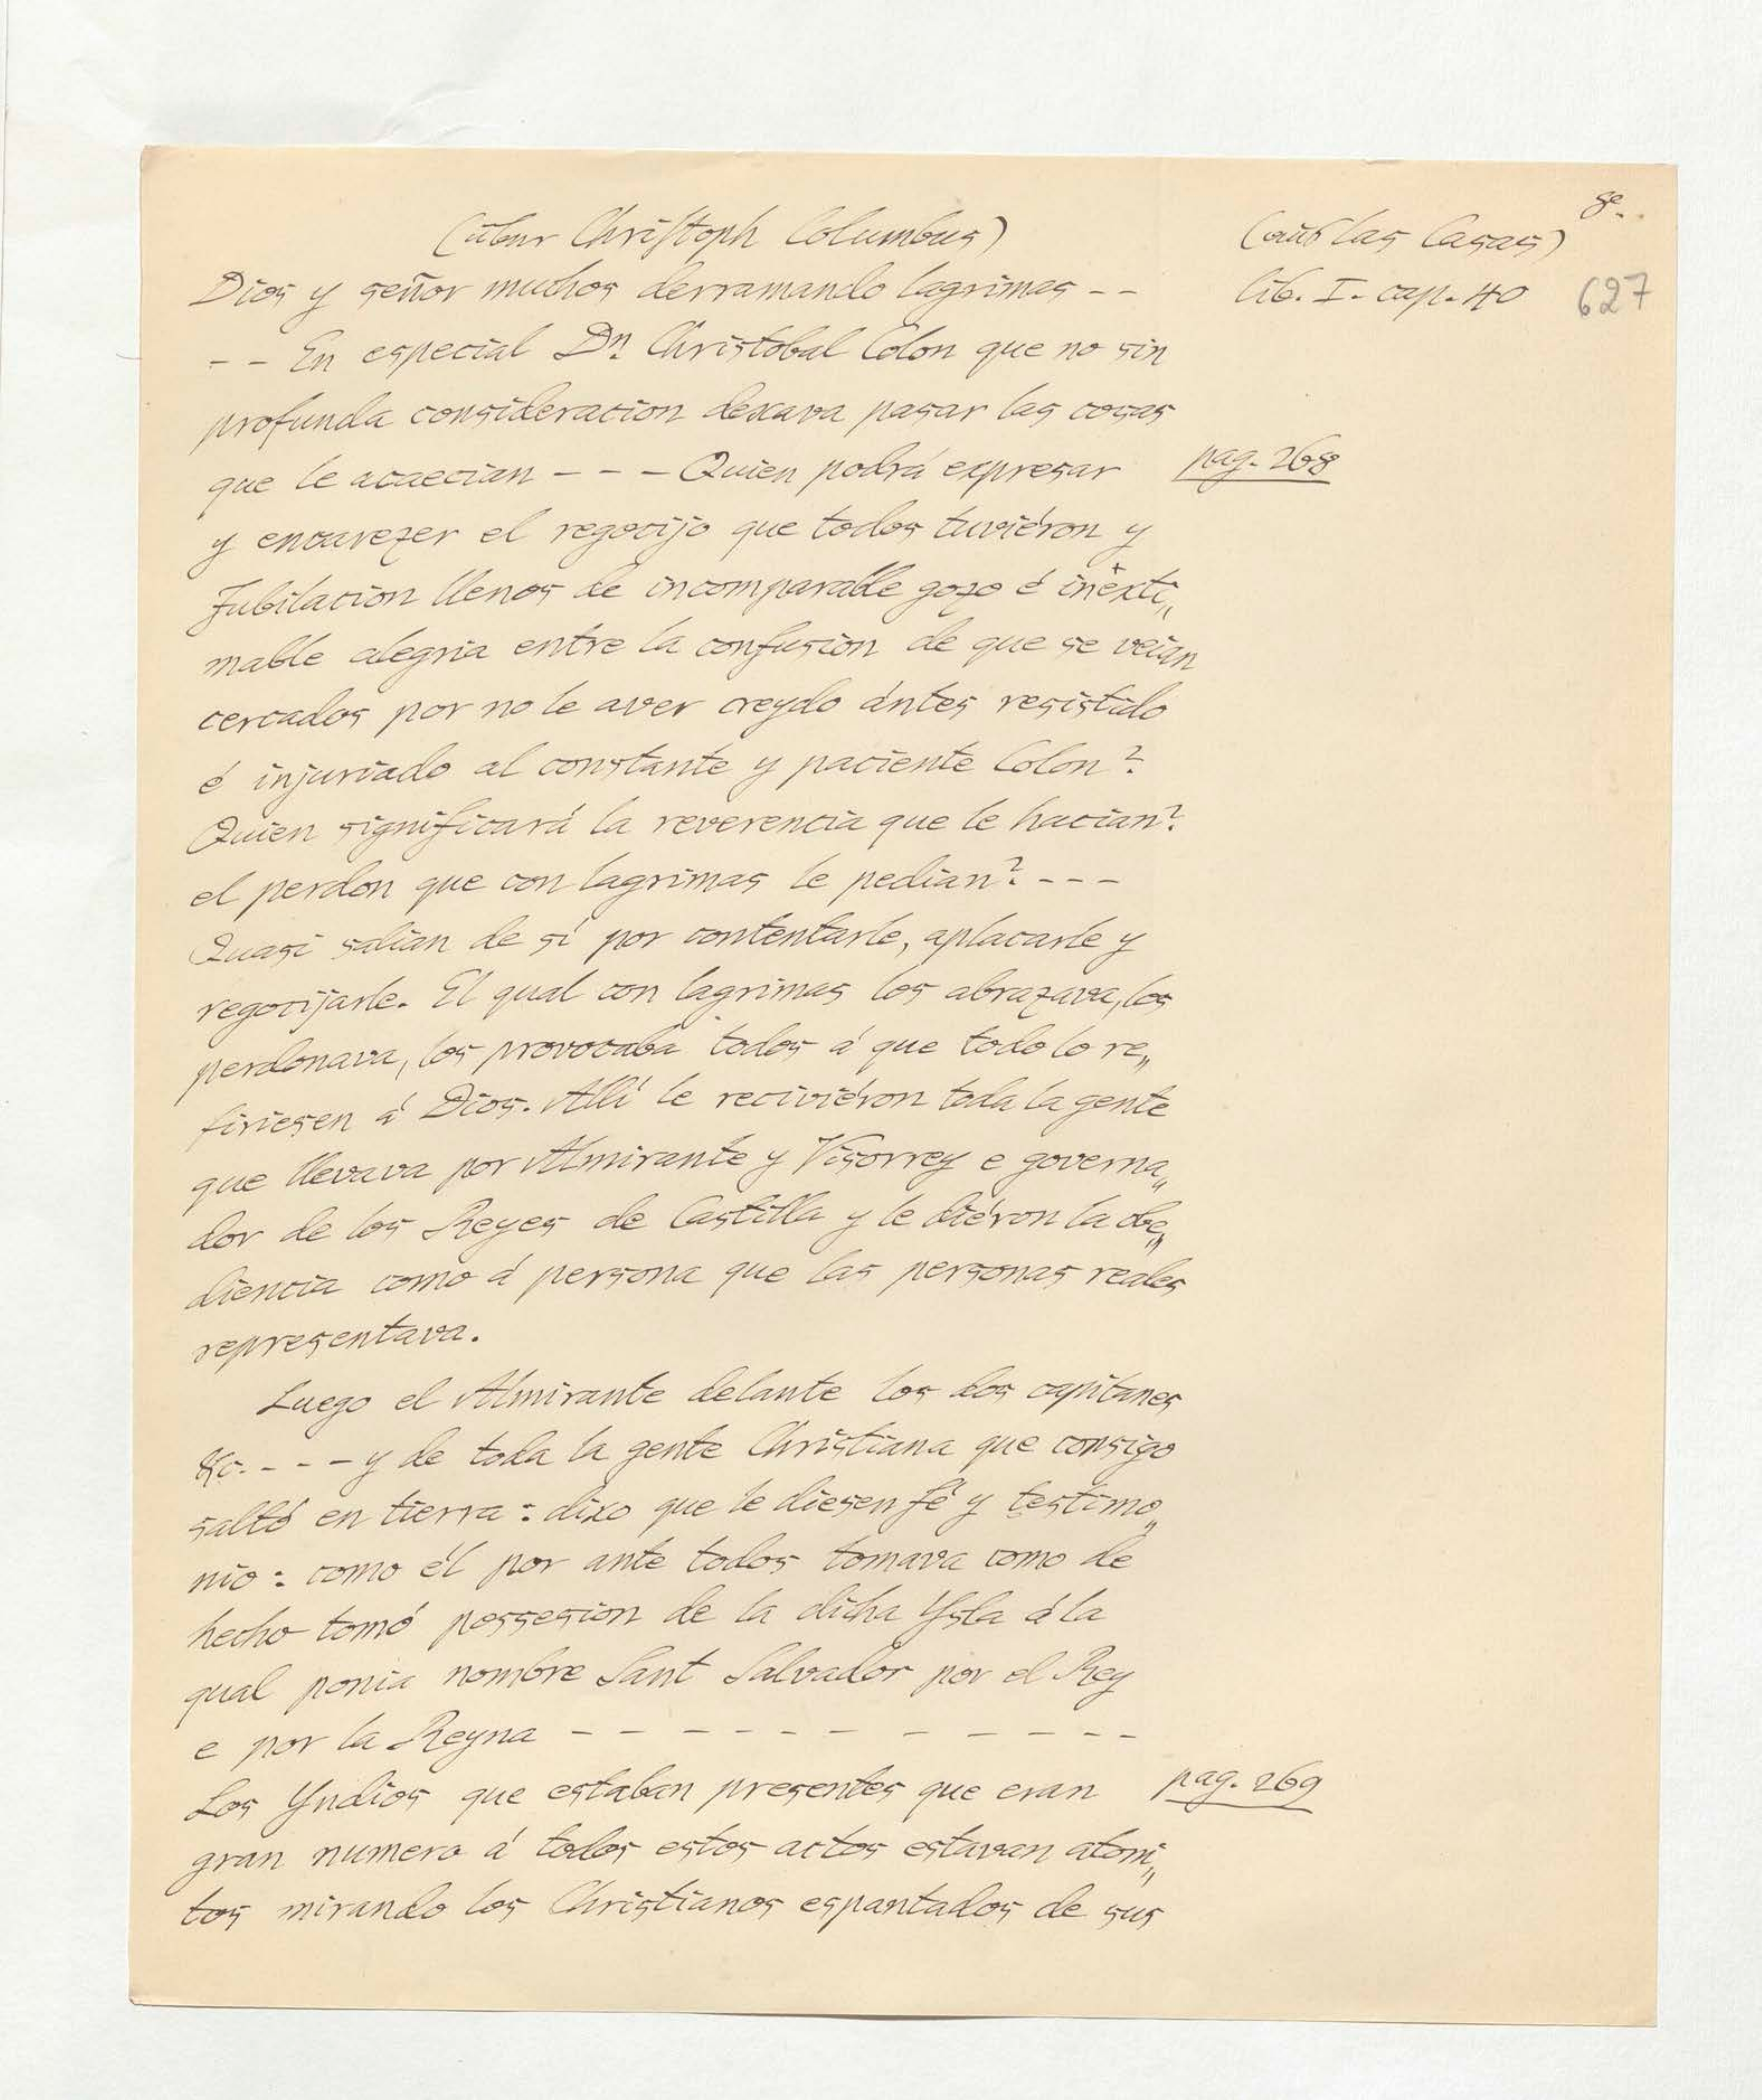 8.
(über Christoph Columbus) (aus las Casas)
Dios y señor muchos derramando lagrimas -- lib. I. cap. 40 627
-- En especial Dn. Christobal Colon que no sin
profunda consideracion dexava pasar las cosas
que le acaecian --- Quien podrá expresar pag. 268
y encarezer el regocijo que todos tuviéron y
Jubilacion llenos de incomparable gozo é inexti„
mable alegria entre la confusion de que se veian
cercados por no le aver creydo ántes resistido
é injuriado al constante y paciente Colon?
Quien significará la reverencia que le hacian?
el perdon que con lagrimas le pedian? ---
Quasi salian de sí por contentarle, aplacarle y
regocijarle. El qual con lagrimas los abrazava, los
perdonava, los provocaba todos á que todo lo re„
firiesen á Dios. Allí le reciviéron toda la gente
que llevava por Almirante y Visorrey e governa„
dor de los Reyes de Castilla y le diéron la obe„
diencia como á persona que las personas reales
representava.
Luego el Almirante delante los dos capitanes
&c. --- y de toda la gente Christiana que consigo
saltó en tierra: dixo que le diesen fé y testimo„
nio: como él por ante todos tomava como de
hecho tomó possesion de la dicha Ysla á la
qual ponia nombre Sant Salvador por el Rey
e por la Reyna - - - - - - - - - - -
Los Yndios que estaban presentes que eran pag. 269
gran numero á todos estos actos estavan atoni„
tos mirando los Christianos espantados de sus